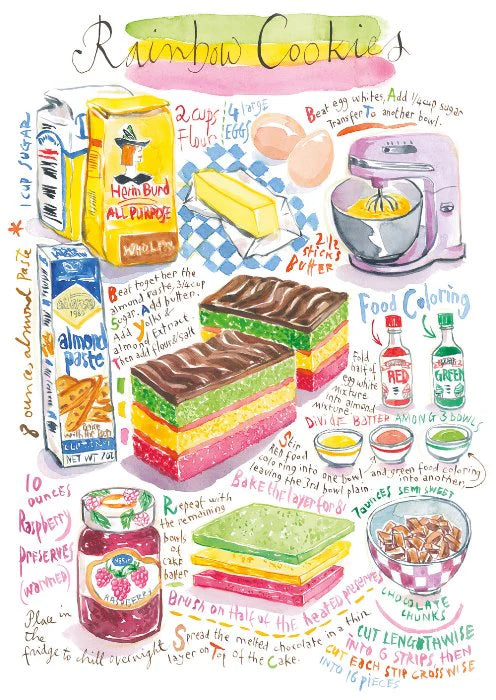 Rainbow Cookies
* 1 CUP SUGAR
8 ounces almond paste
Horin Burd
ALL PURPOSE
2 cups
Flour
4 large
EGGS
Beat egg whites, Add 1/4 cup sugar
Transfer To another bowl.
2 1/2
STICKS
BUTTER
almond
paste
NET WT 7oz
Beat together the
almond paste, 3/4 cup
Sugar. Add butter.
Add yolks &
almond extract
Then add flour & salt
Food Coloring
RED
GREEN
Fold
half of
egg white
mixture
into almond
mixture
DIVIDE BATTER AMONG 3 BOWLS
Stir
RED food
coloring into one bowl
and green food coloring
into another,
leaving the 3rd bowl plain.
Bake the layer for 8
10
OUNCES
Raspberry
PRESERVES
(warmed)
RASPBERRY
Repeat with
the remaining
bowls
of
cake
batter
7 ounces SEMI SWEET
CHOCOLATE
CHUNKS
Brush on Half of the heated preserves
Place in
the fridge to chill overnight
Spread the melted chocolate in a thin
layer on Top of the Cake.
CUT LENGTHWISE
INTO 6 STRIPS, THEN
CUT EACH STIP CROSSWISE
INTO 16 PIECES